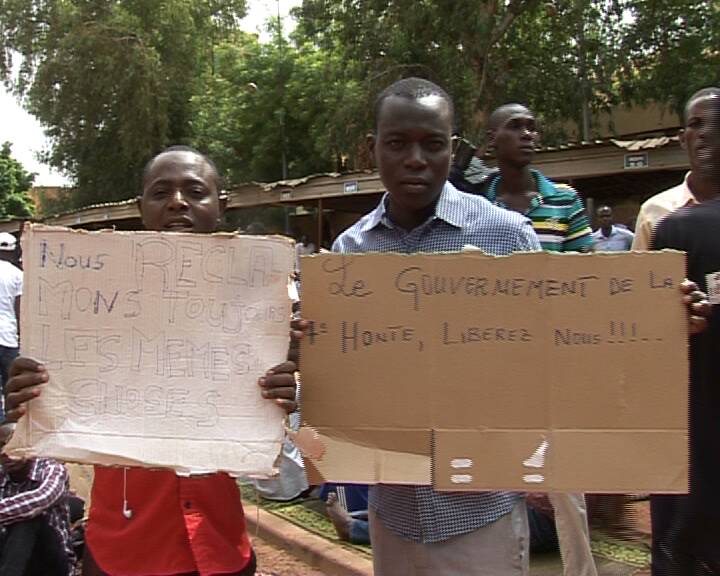 Nous RECLA-
MONS TOUJOURS
LES MEMES
CHOSES
Le GOUVERNEMENT DE LA
HONTE, LIBEREZ NOUS!!!...